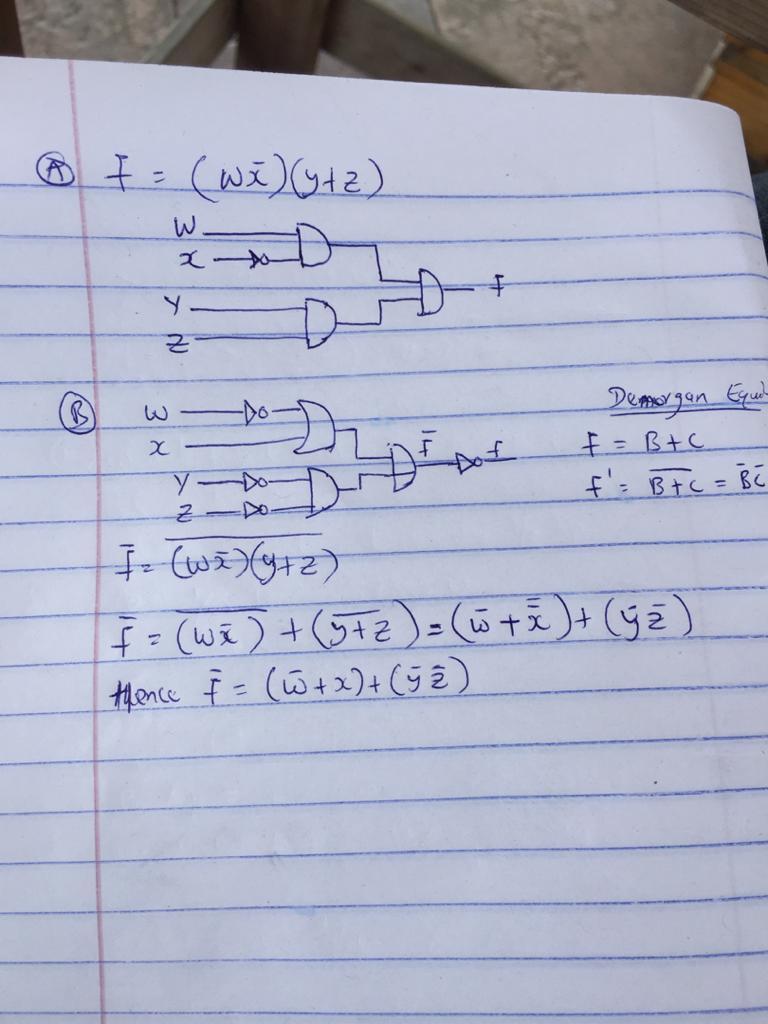 Ⓐ F = (Wx̄)(y+z)
W
x
F
Y
Z
Ⓑ W
x
Y
Z
F̄
f
Demorgan
F = B+C
f' = \overline{B+C} = B̄C̄
F̄ = \overline{(Wx̄)(y+z)}
f̄ = \overline{(Wx̄)} + \overline{(y+z)} = (w̄ + x̿) + (ȳ z̄)
Hence F̄ = (w̄+x)+(ȳ z̄)